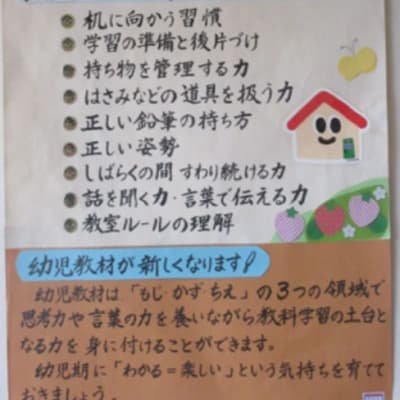 机に向かう習慣
学習の準備と後片づけ
持ち物を管理する力
はさみなどの道具を扱う力
正しい鉛筆の持ち方
正しい姿勢
しばらくの間 すわり続ける力
話を聞く力・言葉で伝える力
教室ルールの理解
幼児教材が新しくなります!
幼児教材は「もじ・かず・ちえ」の3つの領域で
思考力や言葉の力を養いながら教科学習の土台と
なる力を身に付けることができます。
幼児期に「わかる=楽しい」という気持ちを育てて
おきましょう。